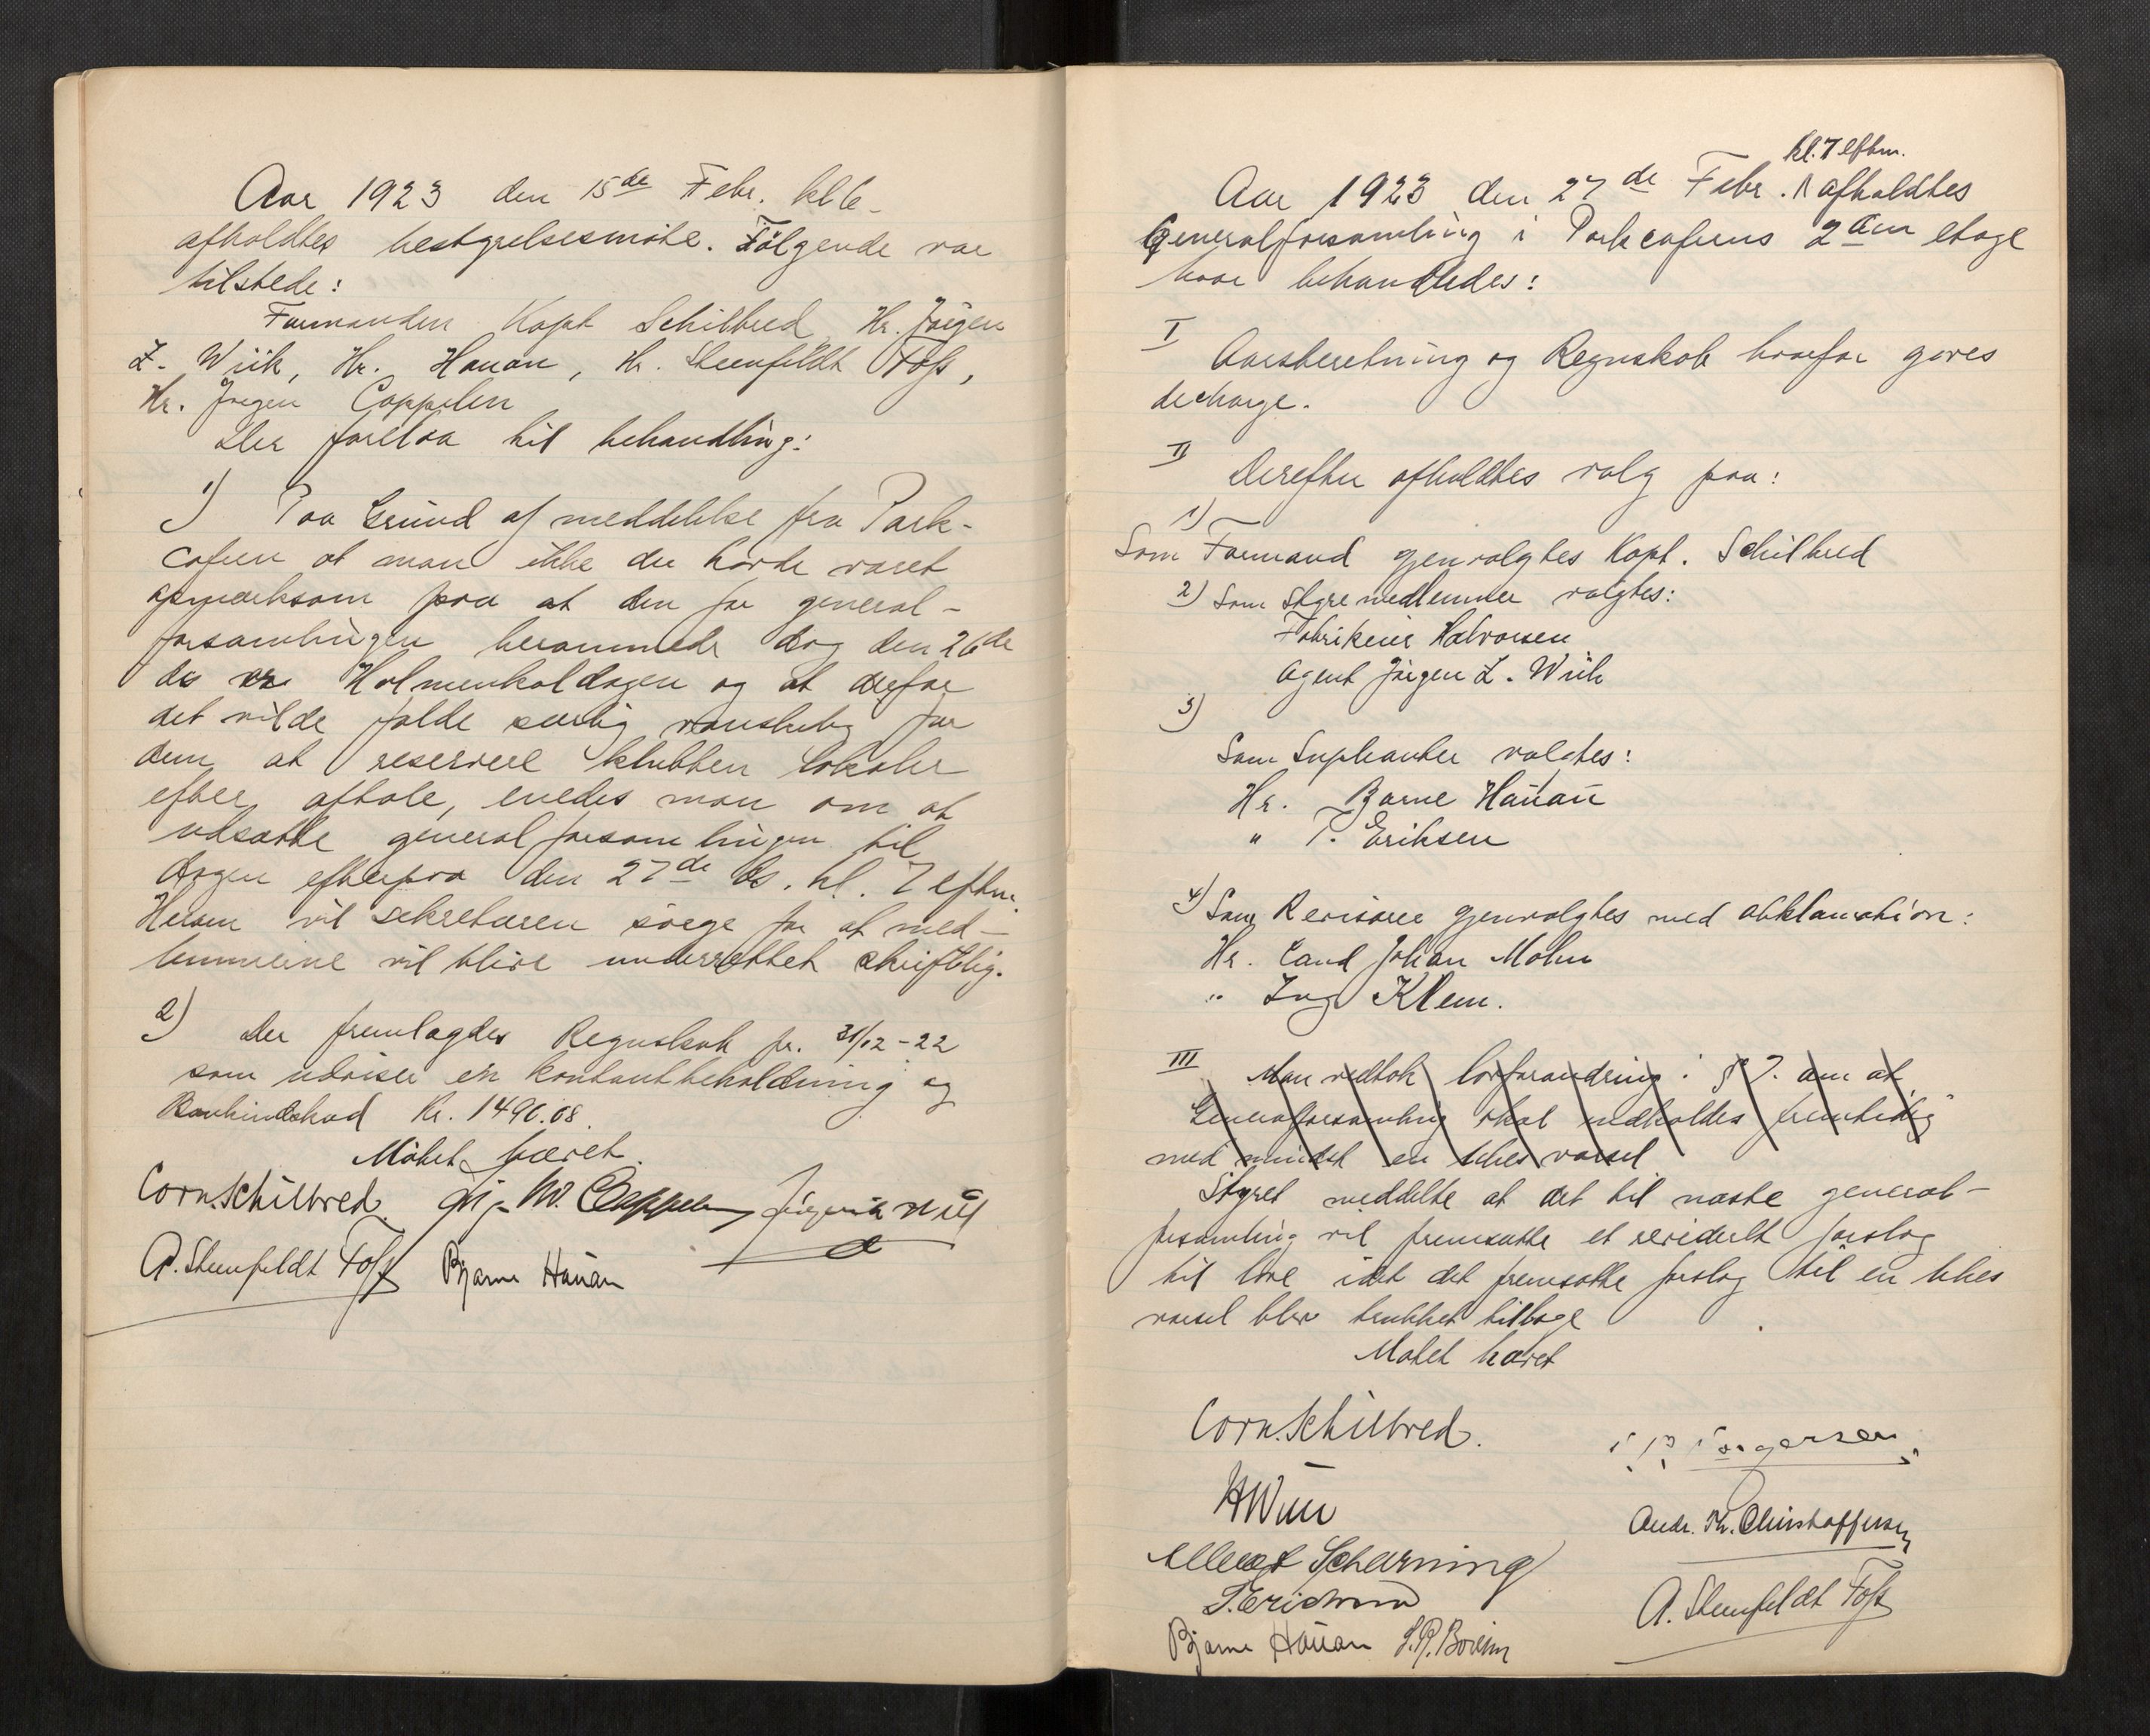 Aar 1923 den 15de Febr. kl 6-
afholdtes bestyrelsesmöte. Fölgende var
tilstede:
Formanden Kapt Schilbred, Hr. Jörgen
L. Wiik, Hr. Hauan, Hr. Steenfeldt Foss,
Hr. Jörgen Cappelen
Der forelaa til behandling:
1) Paa Grund af meddelelse fra Park-
cafeen at man ikke der havde været
opmerksom paa at den for general-
forsamlingen berammede dag den 26de
ds var Holmenkoldagen og at derfor
det vilde falde særlig vanskelig for
dem at reservere klubben lokaler
efter aftale, enedes man om at
udsætte generalforsamlingen til
dagen efterpaa den 27de ds. kl. 7 eftm.
Herom vil sekretæren sörge for at med-
lemmerne vil blive underrettet skriftlig.
2) Der fremlagdes Regnskab pr. 31/12-22
som udviser en kontantbeholdning og
Bankindskud Kr. 1490.08.
Mötet hævet.
Corn. Schilbred. Cappelen Jörgen Wiik
A. Steenfeldt Foss Bjarne Hauan
kl. 7 eftm.
Aar 1923 den 27de Febr. afholdtes
Generalforsamling i Parkcafeens 2den etage
hvor behandledes:
I Aarsberetning og Regnskab hvorfor gaves
decharge.
II Derefter afholdtes valg paa:
1)
Som Formand gjenvalgtes Kapt. Schilbred
2) Som styremedlemmer valgtes:
Fabrikeier Halvorsen
Agent Jörgen L. Wiik
3)
Som Supleanter valgtes:
Hr. Bjarne Hauan
" T. Eriksen
4) Som Revisorer gjenvalgtes med akklamation:
Hr. Cand Johan Mohn
" Ing Klem.
III Man vedtok lovforandring i § 7. om at
Generalforsamling skal indkaldes fremtidig
med mindst en ukes varsel
Styret meddelte at det til næste general-
forsamling vil fremsætte et revideret forslag
til love idet det fremsatte forslag til en ukes
varsel blev trukket tilbage
Mötet hævet
Corn. Schilbred.
HWiik
Andr. Th. Christoffersen
Scharning
T. Erichsen
A. Steenfeldt Foss
Bjarne Hauan